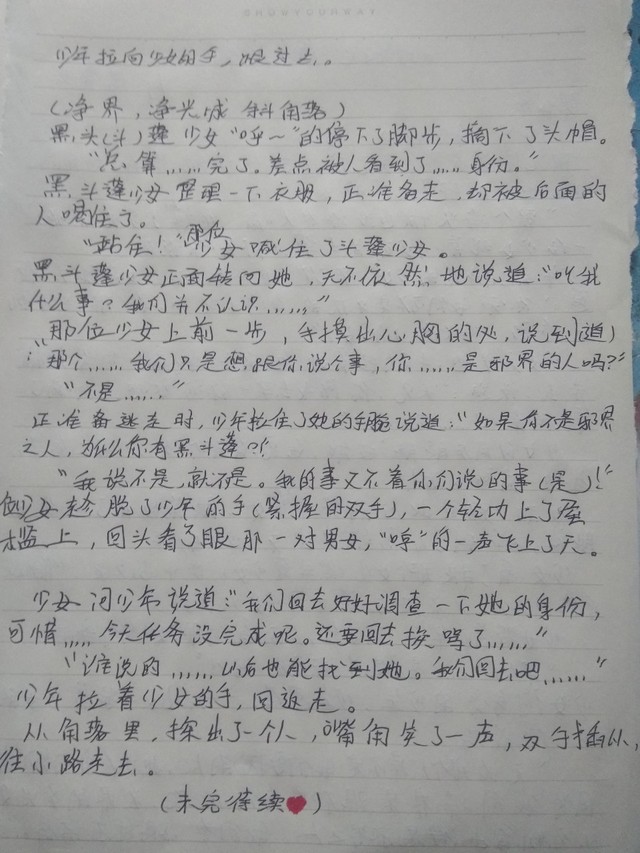 少年拉向少女的手，跟过去。
(净界，净光城 斜角落)
黑头(斗)蓬少女“呼~”的停下了脚步，摘下了头帽。
“总算……完了。差点被人看到了……身份。”
黑斗蓬少女整理一下衣服，正准备走，却被后面的
人喝住了。
“站住！”那位少女喊住了斗蓬少女。
黑斗蓬少女正面转向她，天不依然地说道：“叫我
什么事？我们并不认识……”
那位少女上前一步，手摸出心胸的处，说到(道)
：“那个……我们只是想跟你说个事，你……是邪界的人吗？”
“不是……”
正准备逃走时，少年拉住了她的手腕说道：“如果你不是邪界
之人，为什么你有黑斗蓬？！
“我说不是，就不是。我的事又不着你们说的事(是)！”
少女 脱了少年的手(紧握的双手)，一个轻功上了屋
槛上，回头看了眼那一对男女，“哼”的一声飞上了天。
少女问少年说道：“我们回去好好调查一下她的身份，
可惜……今天任务没完成呢。还要回去挨骂了……”
“谁说的……以后也能找到她。我们回去吧……”
少年拉着少女的手，回返走。
从角落里，探出了一个人，嘴角笑了一声，双手插从，
往小路走去。
(未完待续❤)